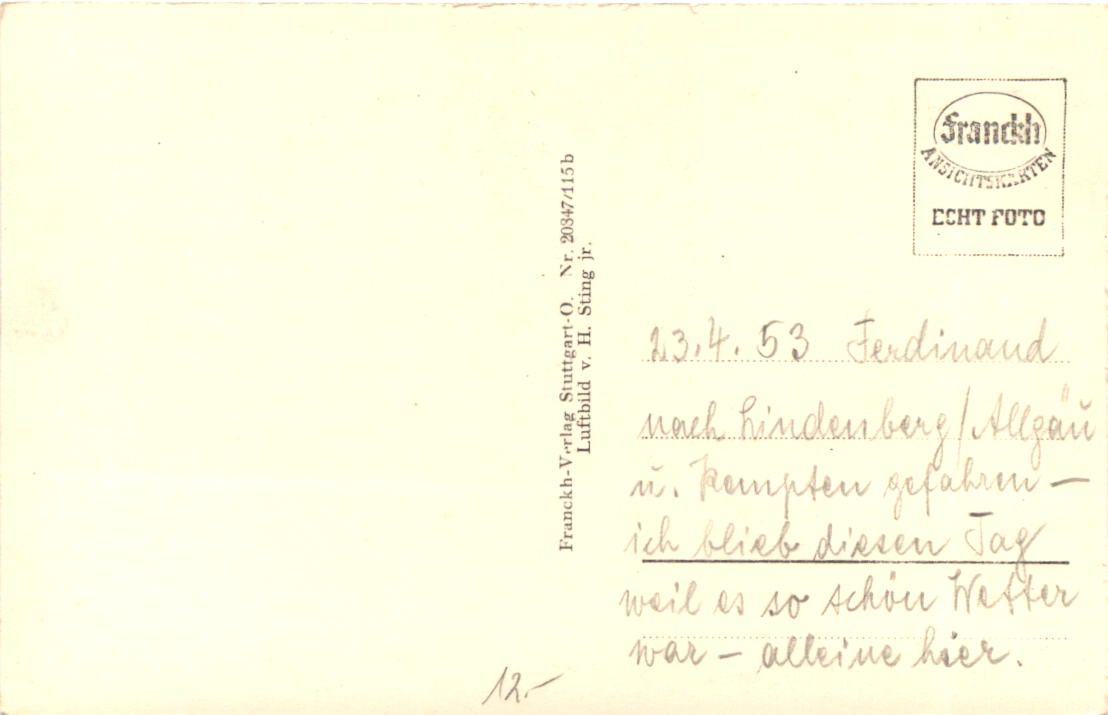 Franckh
ANSICHTSKARTEN
ECHT FOTO
Franckh-Verlag Stuttgart-O. Nr. 20847/115b
Luftbild v. H. Sting jr.
23.4.53 Ferdinand
nach Lindenberg/Allgäu
u. Kempten gefahren —
ich blieb diesen Tag
weil es so schön Wetter
war — alleine hier.
12.-